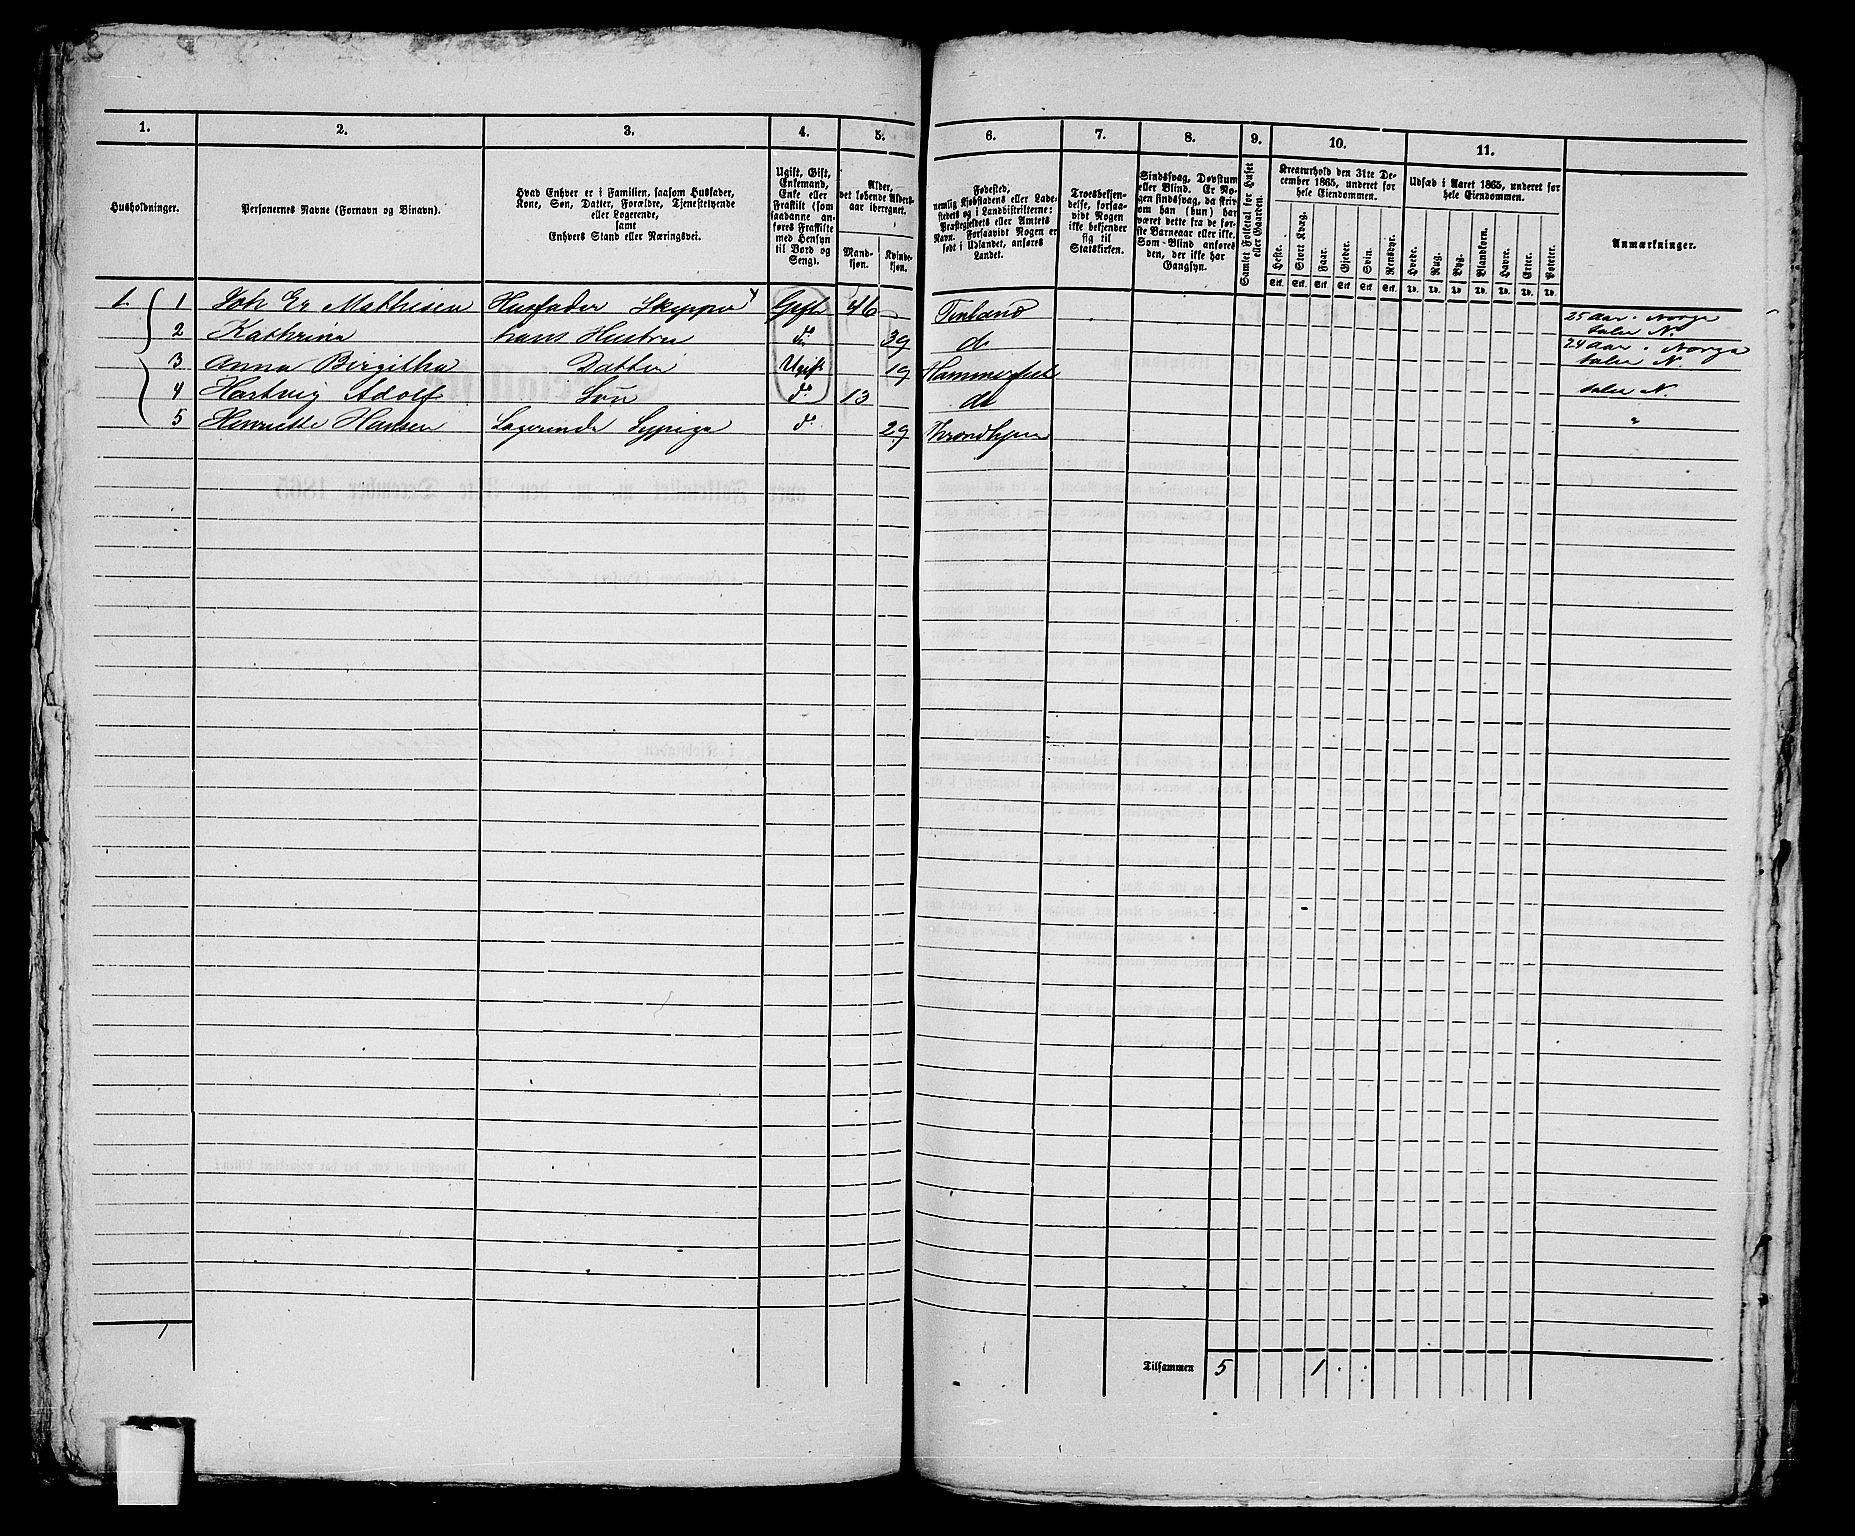 1.
2.
3.
4.
5.
6.
7.
8.
9.
10.
11.
Husholdninger.
Personernes Navne (Fornavn og Binavn).
Hvad Enhver er i Familien, saasom Husfader,
Kone, Søn, Datter, Forældre, Tjenestetyende
eller Logerende,
samt
Enhvers Stand eller Næringsvei.
Ugift, Gift,
Enkemand,
Enke eller
Fraskilt (som
saadanne an-
føres Fraskilte
med Hensyn
til Bord og
Seng).
Alder,
det løbende Alders-
aar iberegnet.
Mand-
kjøn.
Kvinde-
kjøn.
Fødested,
nemlig Kjøbstadens eller Lade-
stedets og i Landdistrikterne:
Præstegjeldets eller Amtets
Navn. Forsaavidt Nogen er
født i Udlandet, anføres
Landet.
Troesbekjen-
delse, forsaa-
vidt Nogen
ikke bekjender
sig til
Statskirken.
Sindssvag, Døvstum
eller Blind. Er No-
gen sindssvag, da skriv
om han (hun) har
været dette fra de før-
ste Barneaar eller ikke.
Som Blind anføres
den, der ikke har
Gangsyn.
Samlet Folketal for Huset
eller Gaarden.
Kreaturhold den 31te De-
cember 1865, underet for
hele Eiendommen.
Heste.
Stort Kvæg.
Faar.
Gjeder.
Svin.
Rensdyr.
Stk. Stk. Stk. Stk. Stk. Stk.
Udsæd i Aaret 1865, underet for
hele Eiendommen.
Hvede.
Rug.
Byg.
Blandkorn.
Havre.
Erter.
Poteter.
Td. Td. Td. Td. Td. Td. Td.
Anmærkninger.
1 1 Joh Er Mathisen Husfader Skypper Gift 46 Finland 25 Aar i Norge taler N.
2 Kathrina hans Hustru do 39 do 24 Aar i Norge taler N.
3 Anna Birgitha Datter Ugift 19 Hammerfest
4 Hartvig Adolf Søn do 13 do taler N.
5 Henriette Hansen Logerende Sypige do 29 Throndhjem "
1
Tilsammen 5 1